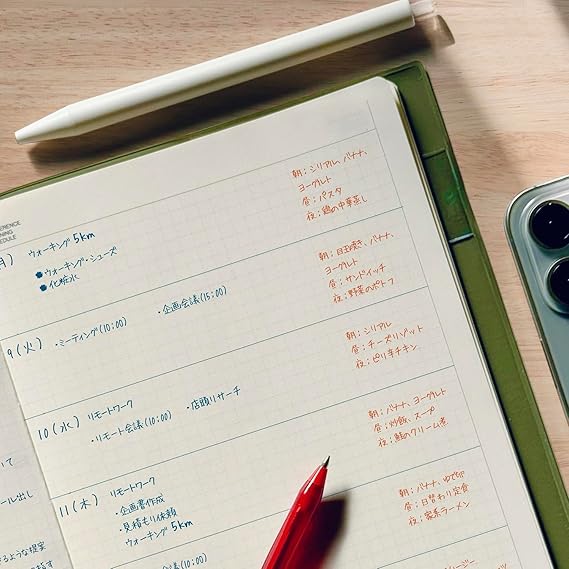 月)
ウォーキング 5km
●ウォーキング・シューズ
●化粧水
朝：シリアル、バナナ、
ヨーグルト
昼：パスタ
夜：鶏の中華蒸し
9(火)
・ミーティング(10:00)
・企画会議(15:00)
朝：目玉焼き、バナナ、
ヨーグルト
昼：サンドイッチ
夜：野菜のポトフ
10(水)
リモートワーク
・リモート会議(10:00)
・店頭リサーチ
朝：シリアル
昼：チーズリゾット
夜：ピリ辛チキン
11(木)
リモートワーク
・企画書作成
・見積もり依頼
ウォーキング 5km
朝：バナナ、ヨーグルト
昼：炒飯、スープ
夜：鮭のクリーム煮
朝：バナナ、ゆで卵
昼：日替わり定食
夜：家系ラーメン
会議(10:00)
いて
ール出し
るような提案